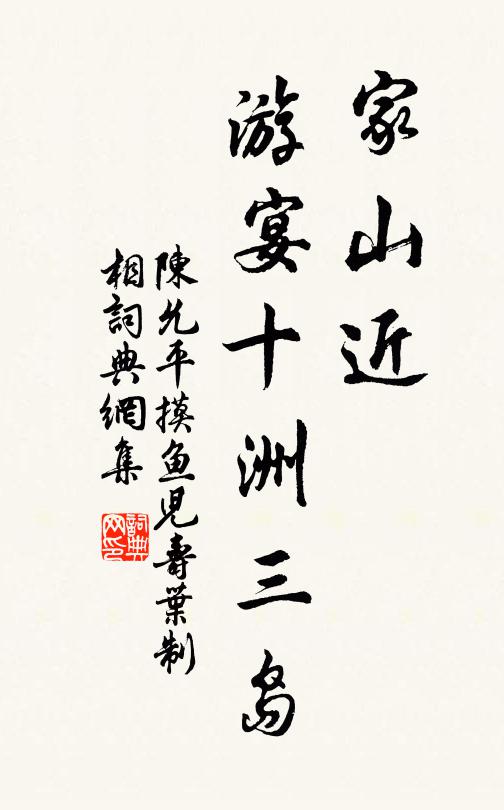 家山近
游宴十洲三島
陳允平摸鱼児壽葉制
相詞典網集
詞典网印